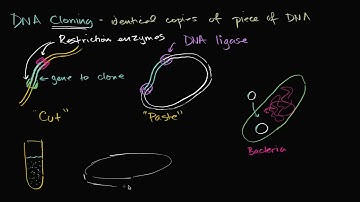 DNA Cloning - identical copies of piece of DNA
Restriction enzymes
DNA ligase
gene to clone
"Cut"
"Paste"
Bacteria